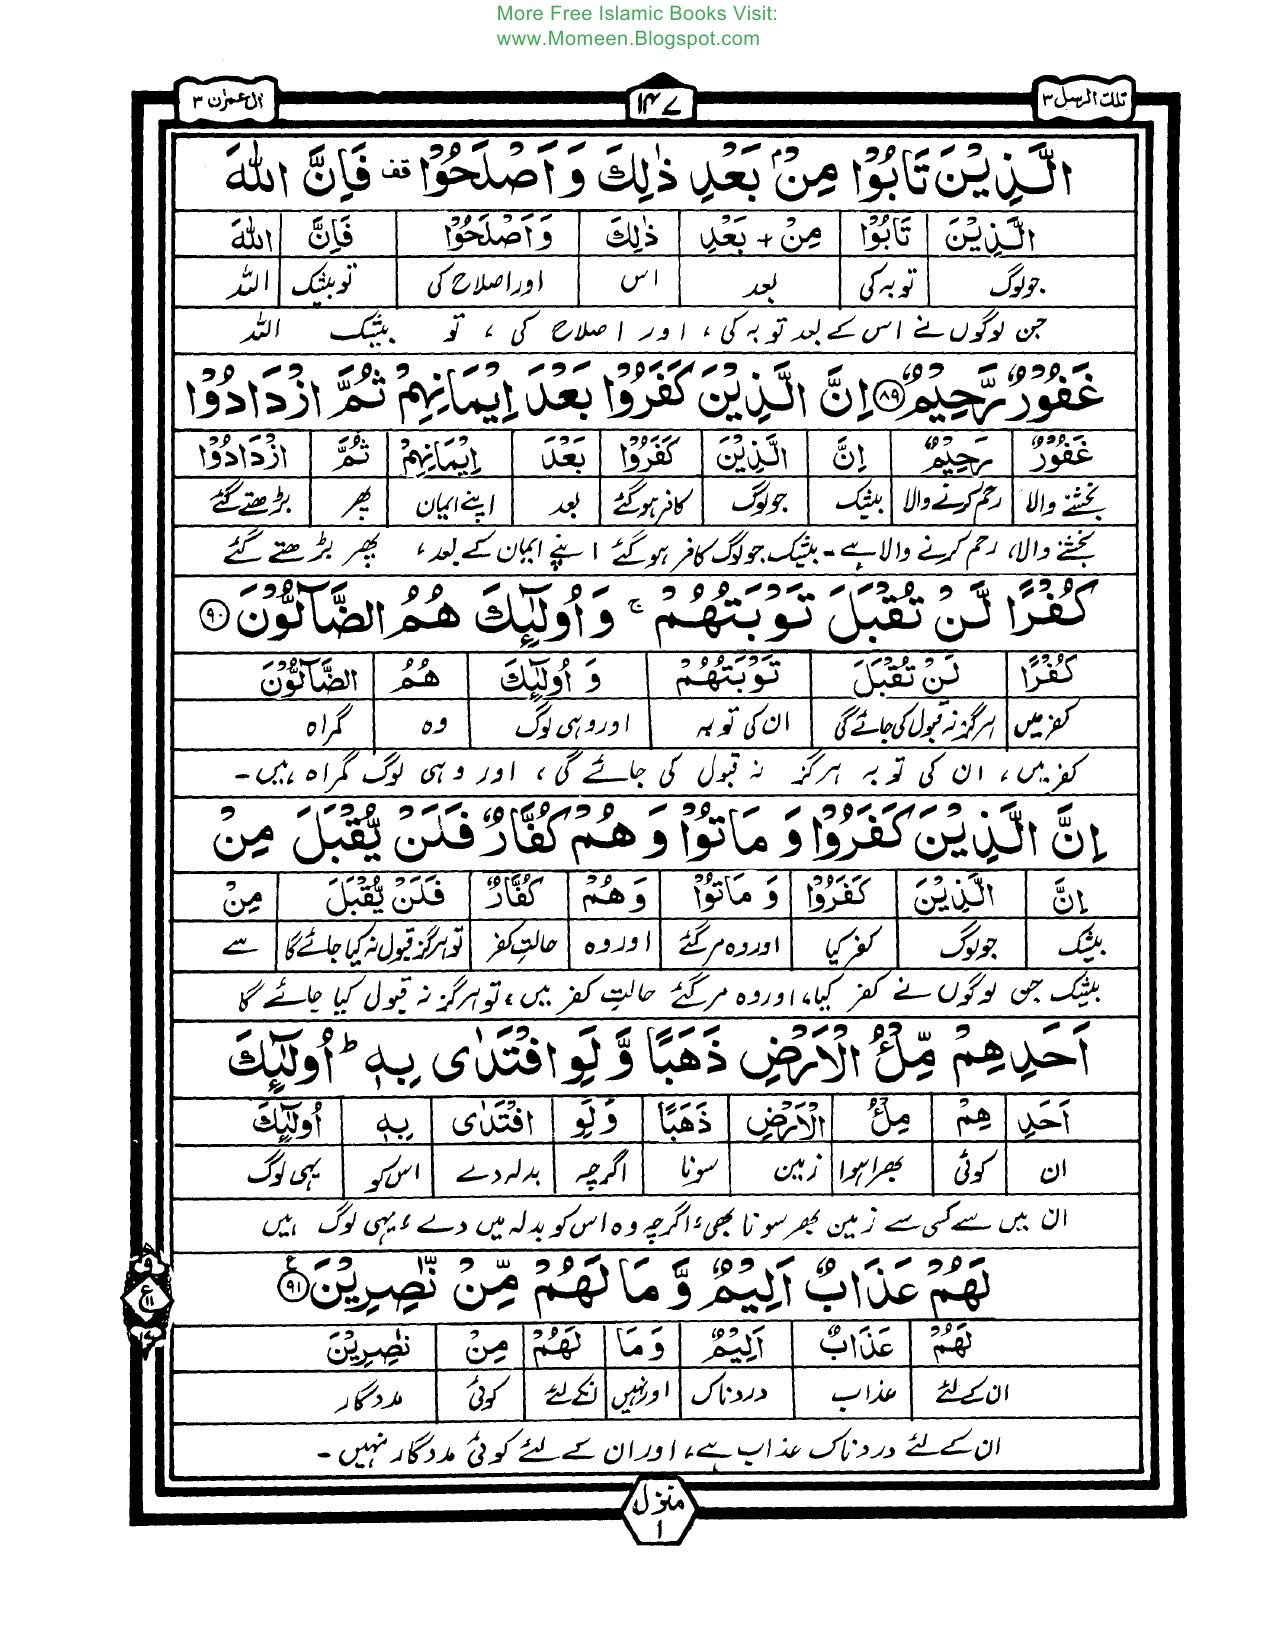 More Free Islamic Books Visit:
www.Momeen.Blogspot.com
تلك الرسل ۳
۱۴۷
اٰل عمرٰن ۳
الَّذِيْنَ تَابُوْا مِنْۢ بَعْدِ ذٰلِكَ وَاَصْلَحُوْا قف فَاِنَّ اللّٰهَ
الَّذِيْنَ تَابُوْا مِنْ + بَعْدِ ذٰلِكَ وَاَصْلَحُوْا فَاِنَّ اللّٰهَ
جو لوگ توبہ کی بعد اس اور اصلاح کی تو بیشک اللہ
جن لوگوں نے اس کے بعد توبہ کی، اور اصلاح کی، تو بیشک اللہ
غَفُوْرٌ رَّحِيْمٌ ۸۹ اِنَّ الَّذِيْنَ كَفَرُوْا بَعْدَ اِيْمَانِهِمْ ثُمَّ ازْدَادُوْا
غَفُوْرٌ رَحِيْمٌ اِنَّ الَّذِيْنَ كَفَرُوْا بَعْدَ اِيْمَانِهِمْ ثُمَّ ازْدَادُوْا
بخشنے والا رحم کرنے والا بیشک جو لوگ کافر ہو گئے بعد اپنے ایمان پھر بڑھتے گئے
بخشنے والا، رحم کرنے والا ہے - بیشک جو لوگ کافر ہو گئے اپنے ایمان کے بعد، پھر بڑھتے گئے
كُفْرًا لَّنْ تُقْبَلَ تَوْبَتُهُمْ ج وَاُولٰٓئِكَ هُمُ الضَّآلُّوْنَ ۹۰
كُفْرًا لَنْ تُقْبَلَ تَوْبَتُهُمْ وَ اُولٰٓئِكَ هُمُ الضَّآلُّوْنَ
کفر میں ہرگز نہ قبول کی جائے گی ان کی توبہ اور وہی لوگ وہ گمراہ
کفر میں، ان کی توبہ ہرگز نہ قبول کی جائے گی، اور وہی لوگ گمراہ ہیں -
اِنَّ الَّذِيْنَ كَفَرُوْا وَ مَاتُوْا وَهُمْ كُفَّارٌ فَلَنْ يُّقْبَلَ مِنْ
اِنَّ الَّذِيْنَ كَفَرُوْا وَ مَاتُوْا وَهُمْ كُفَّارٌ فَلَنْ يُّقْبَلَ مِنْ
بیشک جو لوگ کفر کیا اور وہ مر گئے اور وہ حالتِ کفر تو ہرگز قبول نہ کیا جائے گا سے
بیشک جن لوگوں نے کفر کیا، اور وہ مر گئے حالتِ کفر میں، تو ہرگز نہ قبول کیا جائے گا
اَحَدِهِمْ مِّلْءُ الْاَرْضِ ذَهَبًا وَّلَوِ افْتَدٰى بِهٖ ط اُولٰٓئِكَ
اَحَدِ هِمْ مِلْءُ الْاَرْضِ ذَهَبًا وَلَوِ افْتَدٰى بِهٖ اُولٰٓئِكَ
ان کوئی بھرا ہوا زمین سونا اگرچہ بدلہ دے اس کو یہی لوگ
ان میں سے کسی سے زمین بھر سونا بھی، اگرچہ وہ اس کو بدلہ میں دے، یہی لوگ ہیں
لَهُمْ عَذَابٌ اَلِيْمٌ وَّمَا لَهُمْ مِّنْ نّٰصِرِيْنَ ع ۹۱
۹
ع ۱۱
۱۷
لَهُمْ عَذَابٌ اَلِيْمٌ وَمَا لَهُمْ مِنْ نٰصِرِيْنَ
ان کے لئے عذاب دردناک اور نہیں انکے لئے کوئی مددگار
ان کے لئے دردناک عذاب ہے، اور ان کے لئے کوئی مددگار نہیں -
منزل
۱